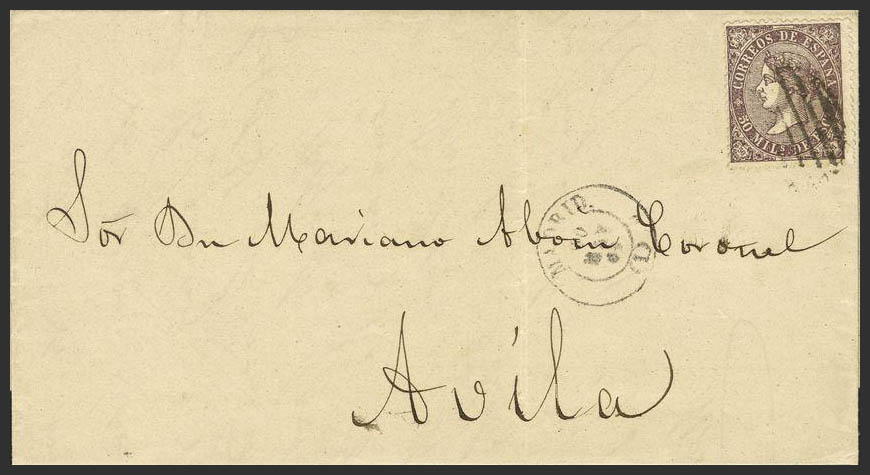 CORREOS DE ESPAÑA
50 MILS DE ESO
Sōr Dn Mariano Aboin Coronel
MADRID.
Avila